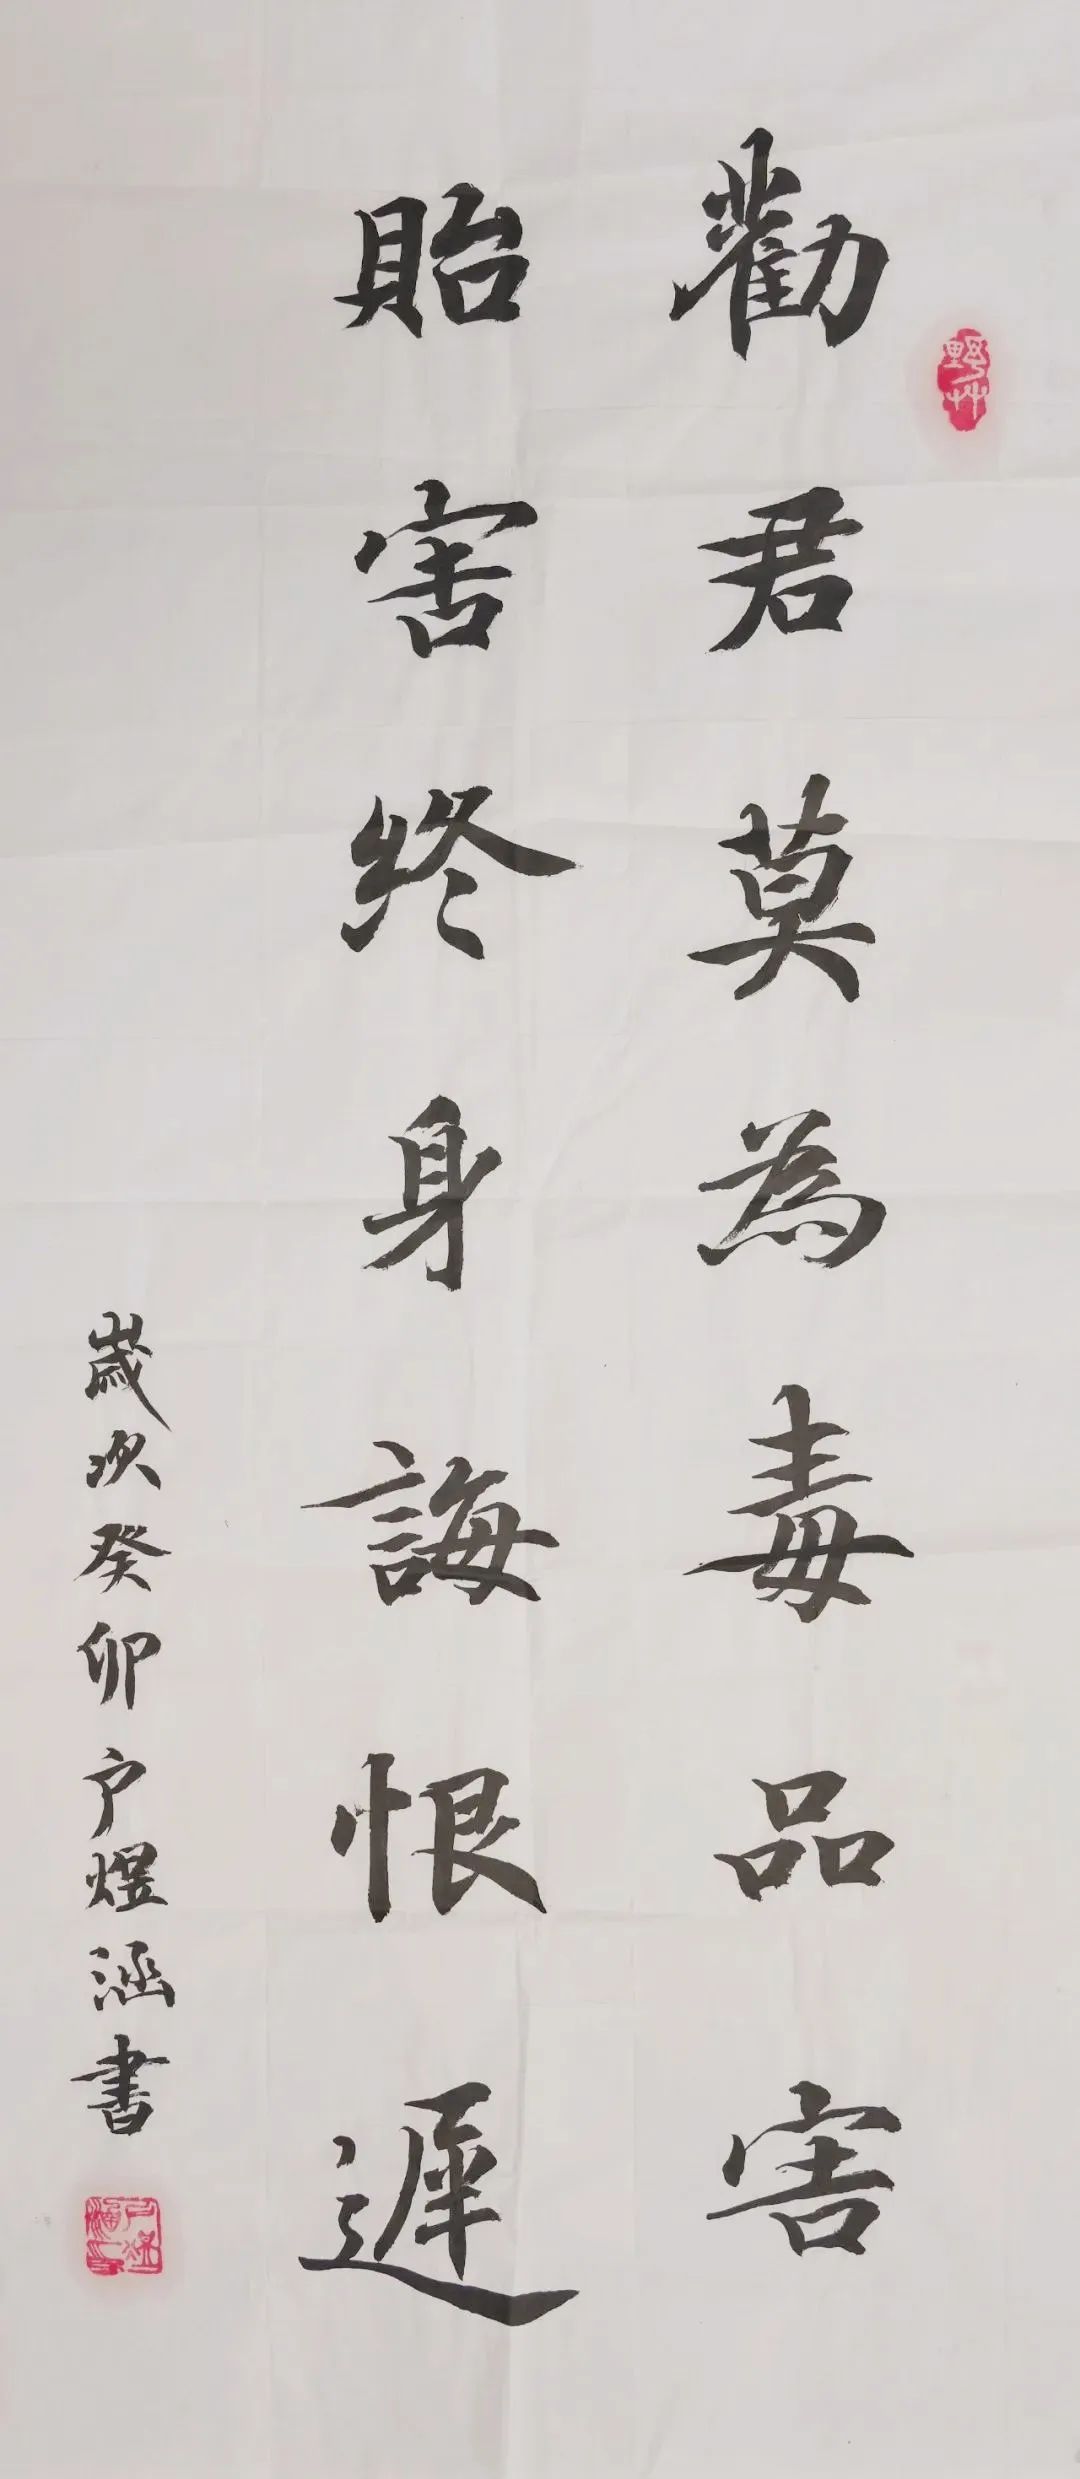 勸君莫為毒品害
貽害終身誨恨遲
歲次癸卯户煜涵書
野艸